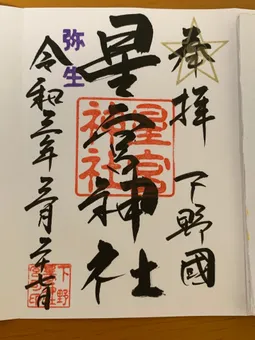 奉拝 下野國
星宮神社
星宮
神社
弥生
令和三年三月二十七日